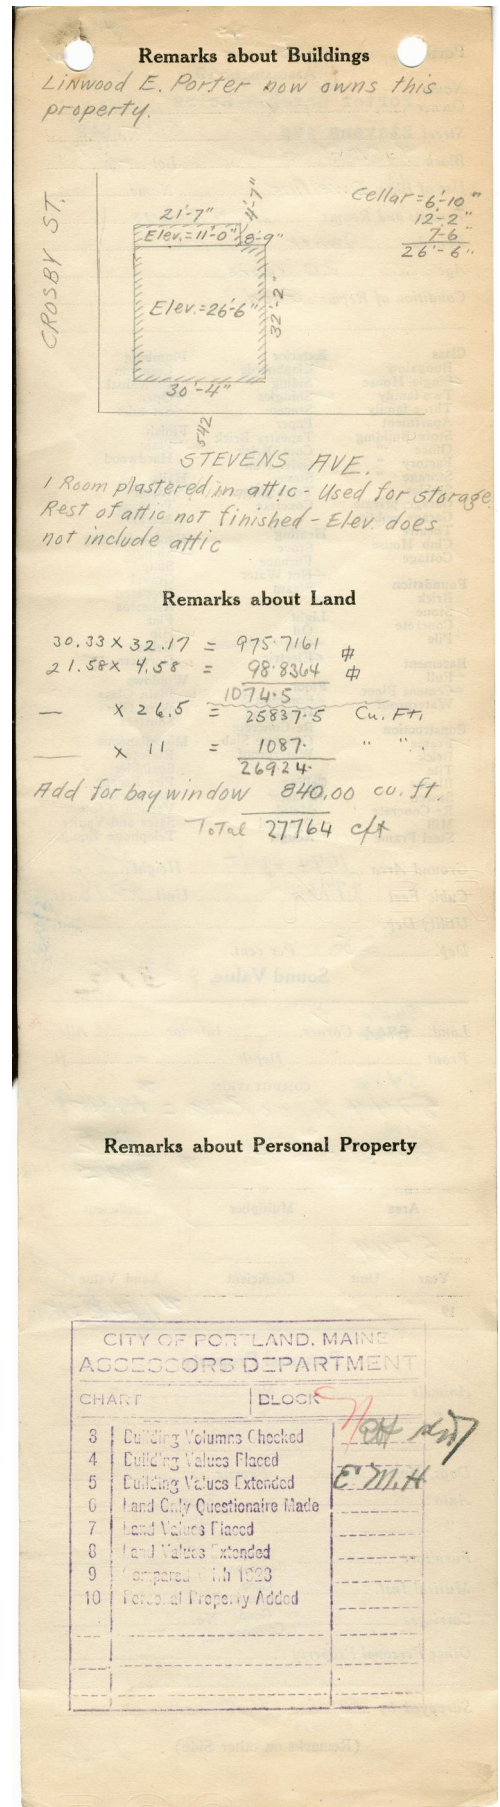 Remarks about Buildings
Linwood E. Porter now owns this
property.
CROSBY ST.
21'-7"
4'-7"
Elev.=11'-0"
8'-9"
Elev.=26'-6"
32'-2"
30'-4"
Cellar=6'-10"
12'-2"
7-6"
26'-6"
542
STEVENS AVE.
1 Room plastered in attic - Used for storage
Rest of attic not finished - Elev does
not include attic
Remarks about Land
30.33 X 32.17 = 975.7161
21.58 X 4.58 = 98.8364
1074.5
— X 26.5 = 25837.5 Cu. Ft.
— X 11 = 1087. " "
26924.
Add for bay window 840.00 cu. ft.
Total 27764 c/ft
Remarks about Personal Property
CITY OF PORTLAND, MAINE
ASSESSORS DEPARTMENT
CHART BLOCK
3 Building Volumns Checked
4 Building Values Placed
5 Building Values Extended
E.M.H
6 Land Only Questionaire Made
7 Land Values Placed
8 Land Values Extended
9 Compared With 1923
10 Personal Property Added